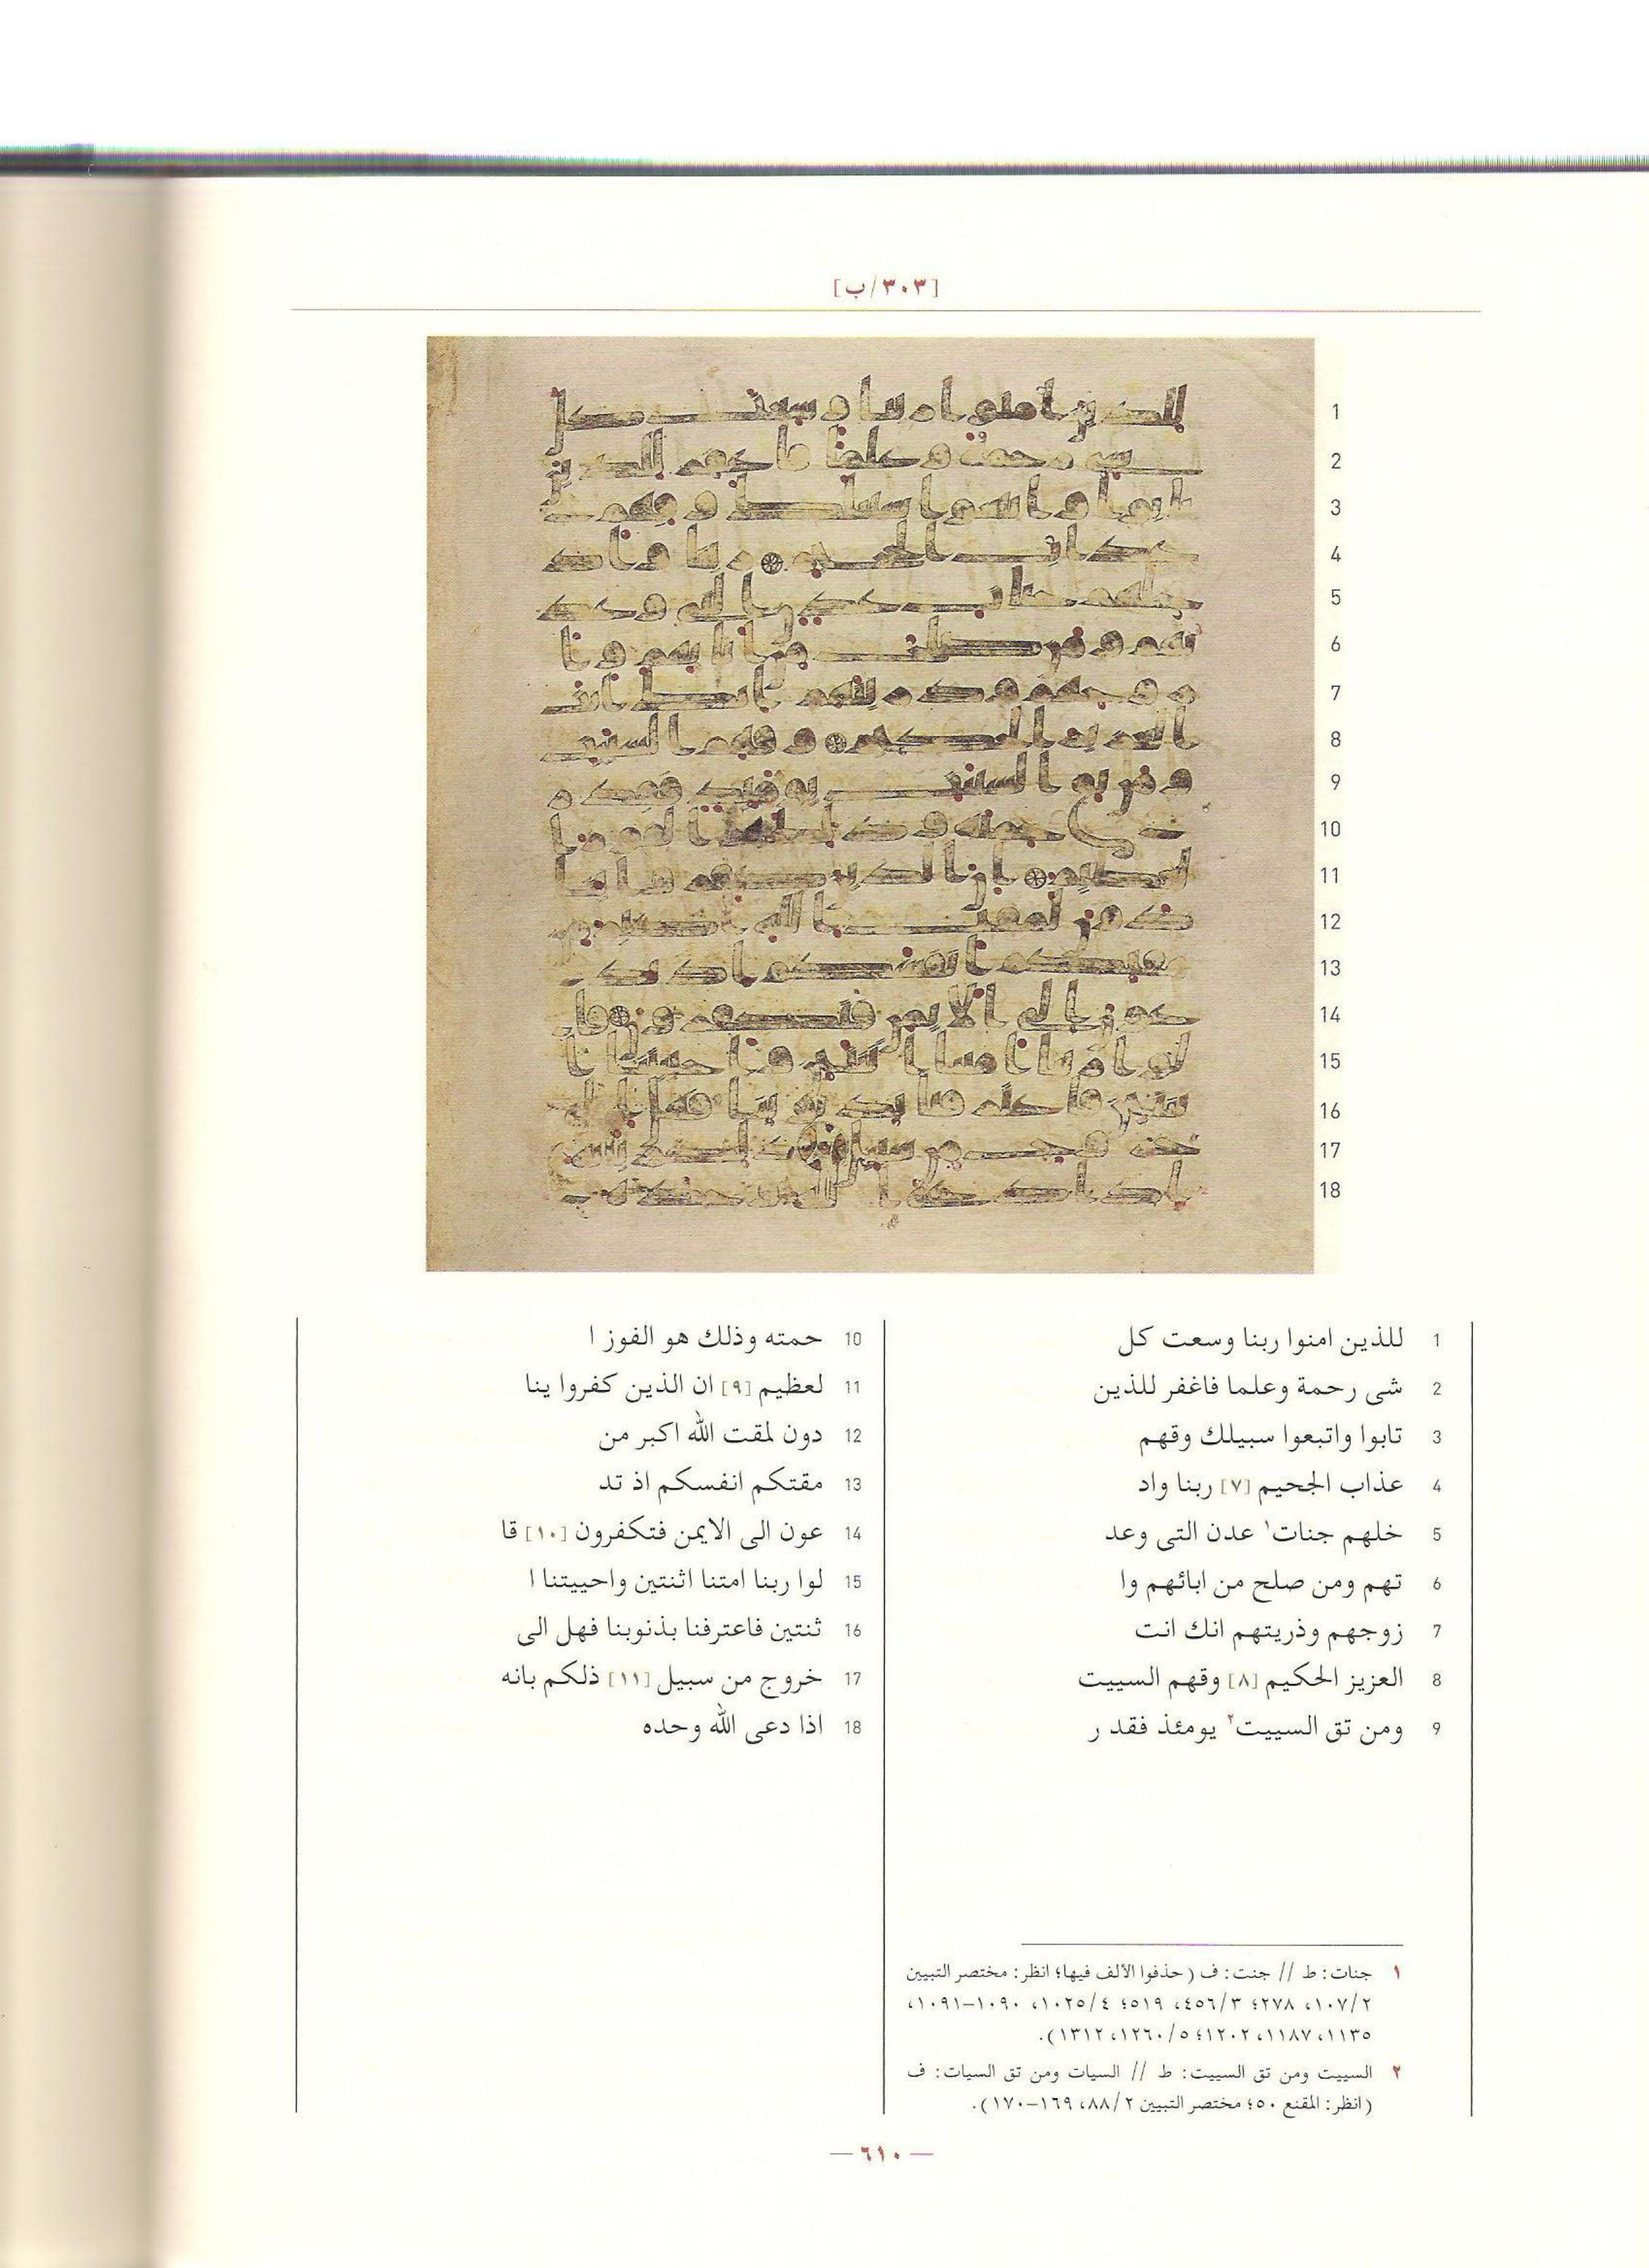 [٣٠٣/ب]
1 للذين امنوا ربنا وسعت كل
2 شى رحمة وعلما فاغفر للذين
3 تابوا واتبعوا سبيلك وقهم
4 عذاب الجحيم [٧] ربنا واد
5 خلهم جنات١ عدن التى وعد
6 تهم ومن صلح من ابائهم وا
7 زوجهم وذريتهم انك انت
8 العزيز الحكيم [٨] وقهم السييت
9 ومن تق السييت٢ يومئذ فقد ر
10 حمته وذلك هو الفوز ا
11 لعظيم [٩] ان الذين كفروا ينا
12 دون لمقت الله اكبر من
13 مقتكم انفسكم اذ تد
14 عون الى الايمن فتكفرون [١٠] قا
15 لوا ربنا امتنا اثنتين واحييتنا ا
16 ثنتين فاعترفنا بذنوبنا فهل الى
17 خروج من سبيل [١١] ذلكم بانه
18 اذا دعى الله وحده
١ جنات: ط // جنت: ف (حذفوا الألف فيها؛ انظر: مختصر التبيين
٢/١٠٧، ٢٧٨؛ ٣/٤٥٦، ٥١٩؛ ٤/١٠٢٥، ١٠٩٠-١٠٩١،
١١٣٥، ١١٨٧، ١٢٠٢؛ ٥/١٢٦٠، ١٣١٢).
٢ السييت ومن تق السييت: ط // السيات ومن تق السيات: ف
(انظر: المقنع ٥٠؛ مختصر التبيين ٢/٨٨، ١٦٩-١٧٠).
— ٦١٠ —